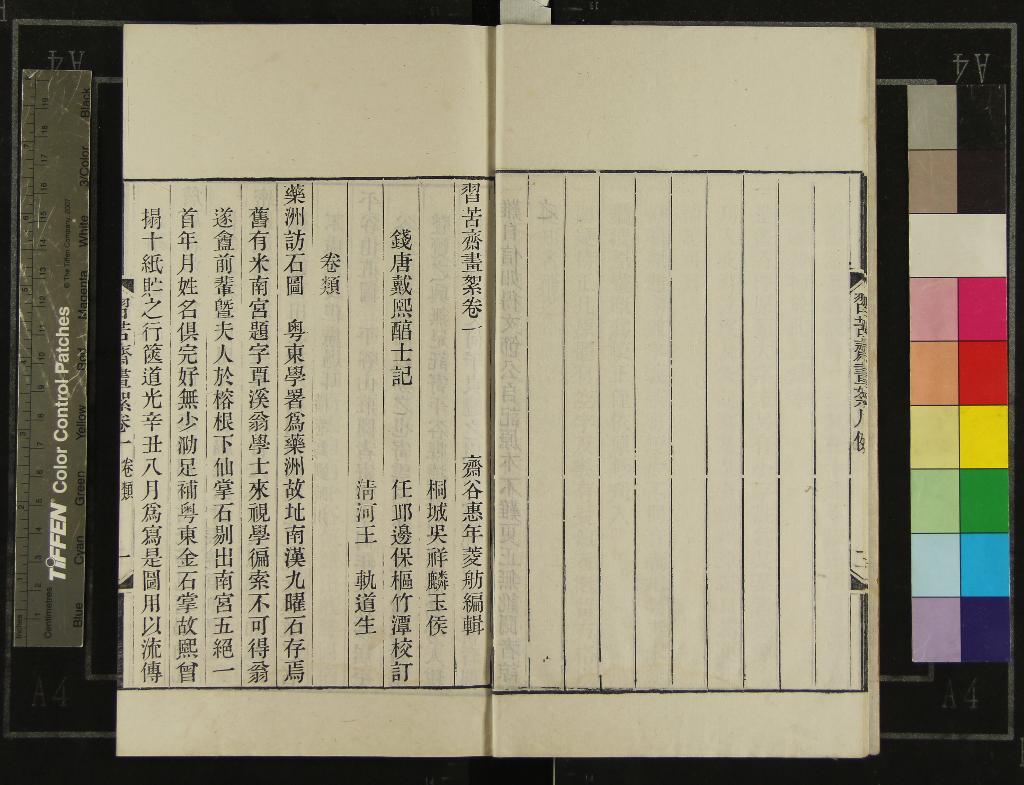 習苦齋畫絮卷一
齋谷惠年菱舫編輯
桐城吳祥麟玉侯
錢唐戴熙醕士記
任邱邊保樞竹潭校訂
清河王 軌道生
卷類
藥洲訪石圖 粵東學署爲藥洲故址南漢九曜石存焉
舊有米南宮題字覃溪翁學士來視學徧索不可得翁
遂盦前輩曁夫人於榕根下仙掌石剔出南宮五絕一
首年月姓名俱完好無少泐足補粵東金石掌故熙曾
搨十紙貯之行篋道光辛丑八月爲寫是圖用以流傳
習苦齋畫絮卷一 卷類 一
習苦齋畫絮凡例
二
TIFFEN Color Control Patches
© The Tiffen Company, 2007
Centimetres
Inches
Blue
Cyan
Green
Yellow
Red
Magenta
White
3/Color
Black
A4
A4
A4
A4